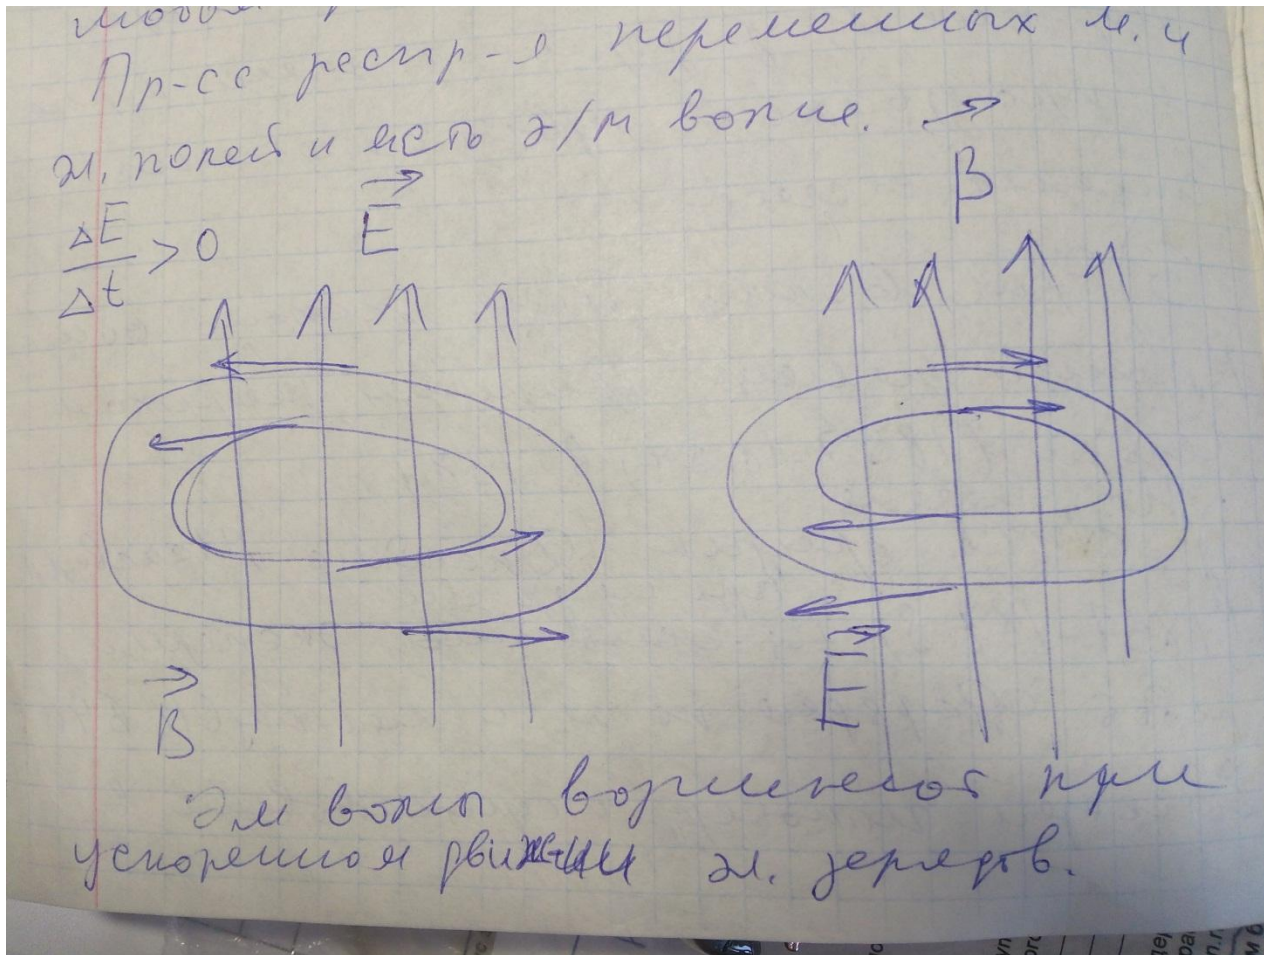 Пр-сс распр-я переменных м. и
эл. полей и есть э/м волне.
B
ΔE/Δt > 0
E
B
E
Эм волны возникают при
ускоренном движении эл. зарядов.